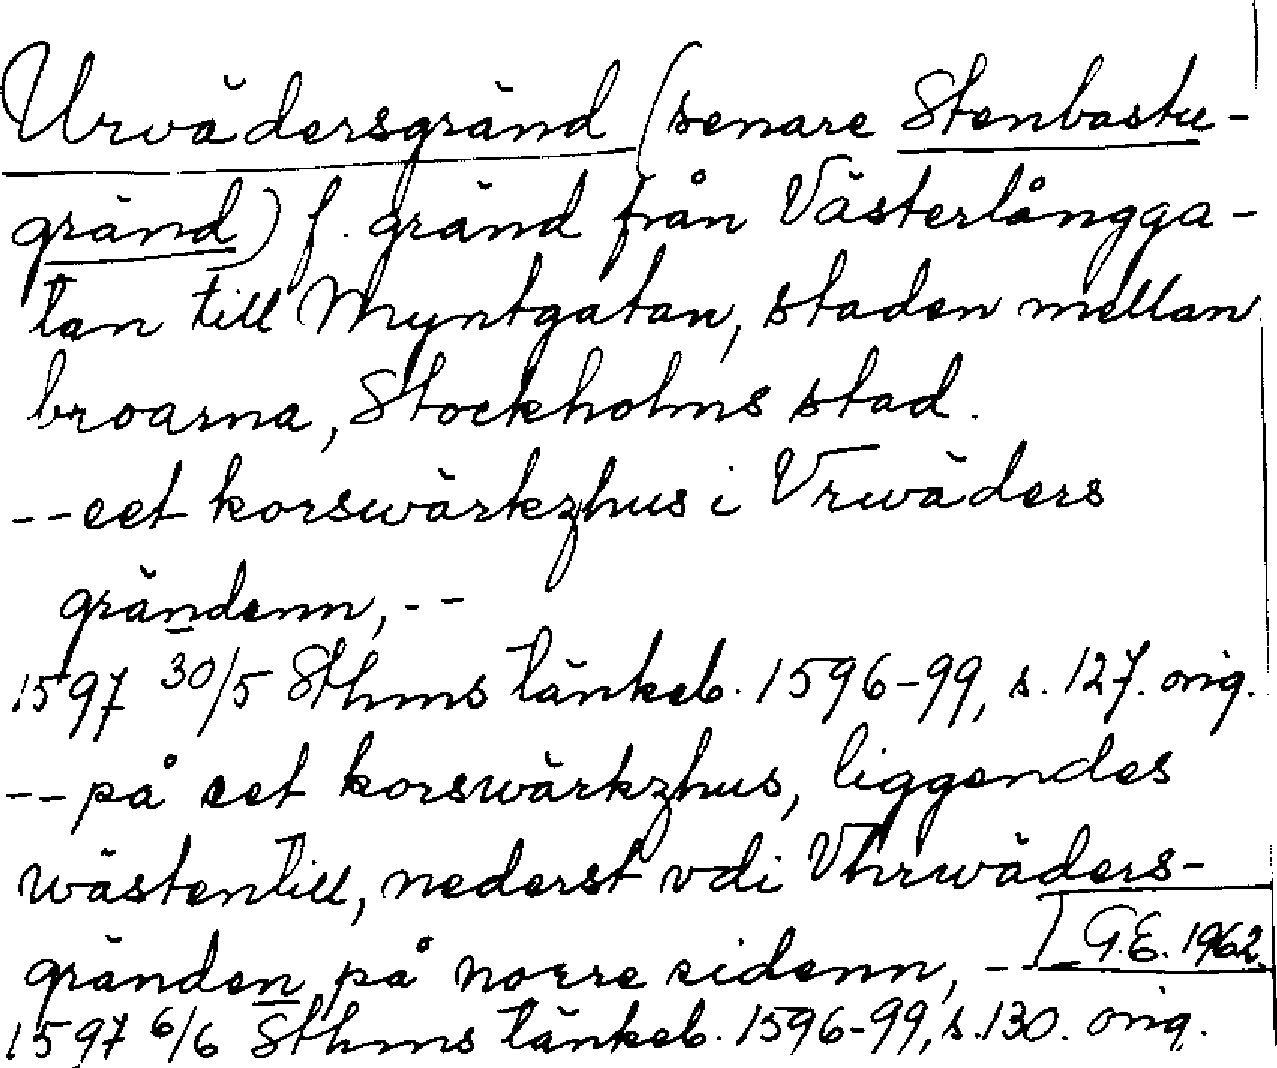 Urvädersgränd (senare Stenbastu-
gränd) f. gränd från Västerlångga-
tan till Myntgatan, staden mellan
broarna, Stockholms stad.
--eet korswärkzhus i Vrwäders
grändenn, --
1597 30/5 Sthms tänkeb. 1596-99, s. 127. orig.
--på eet korswärkzhus, liggendes
wästentill, nederst vdi Vhrwäders-
gränden på norre sidenn, -
G.E. 1962.
1597 6/6 Sthms tänkeb. 1596-99, s. 130. orig.